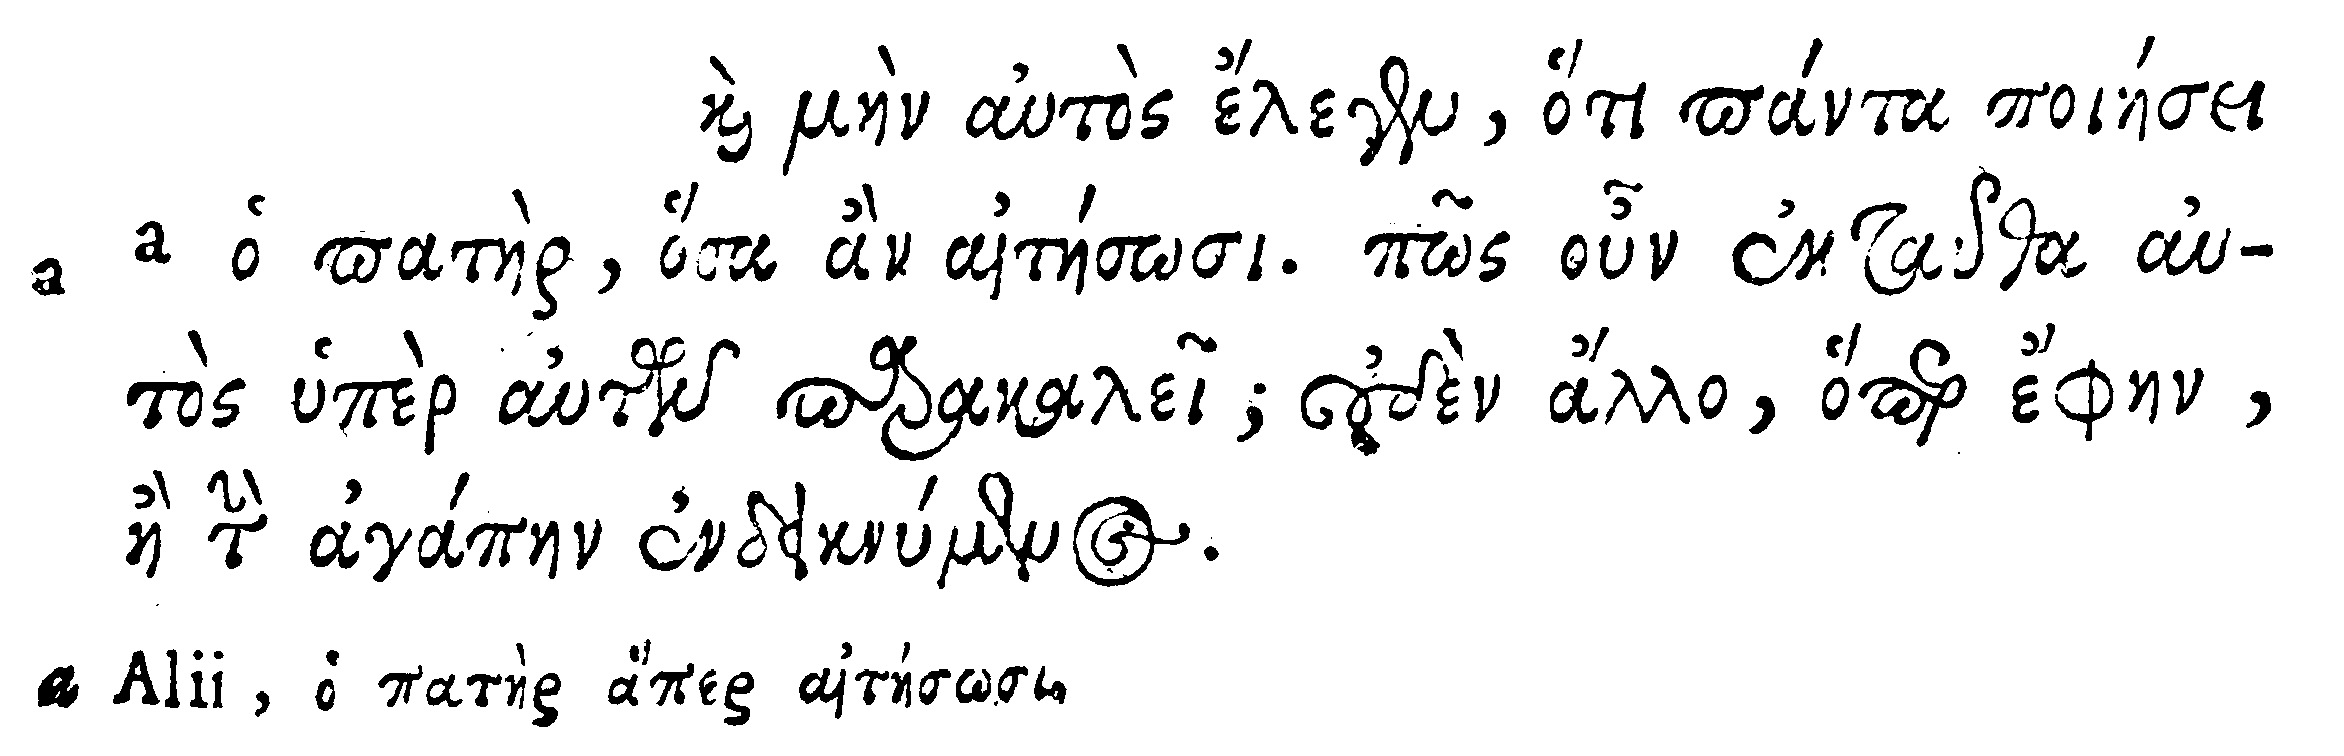 καὶ μὴν αὐτὸς ἔλεγεν, ὅτι πάντα ποιήσει
a a ὁ πατὴρ, ὅσα ἂν αἰτήσωσι. πῶς οὖν ἐνταῦθα αὐ-
τὸς ὑπὲρ αὐτῶν παρακαλεῖ; οὐδὲν ἄλλο, ὅπερ ἔφην,
ἢ τὴν ἀγάπην ἐνδεικνύμενος.
a Alii, ὁ πατὴρ ἅπερ αἰτήσωσι